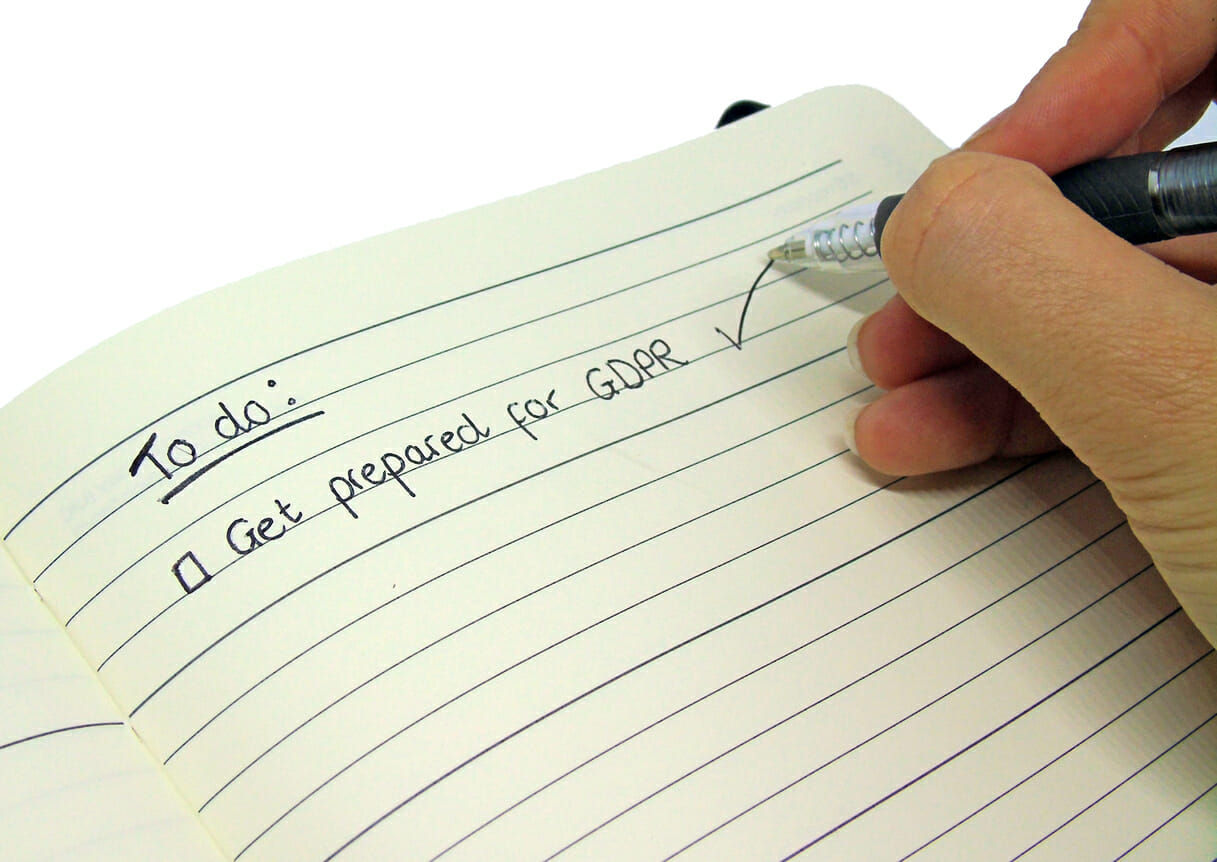 To do:
Get prepared for GDPR